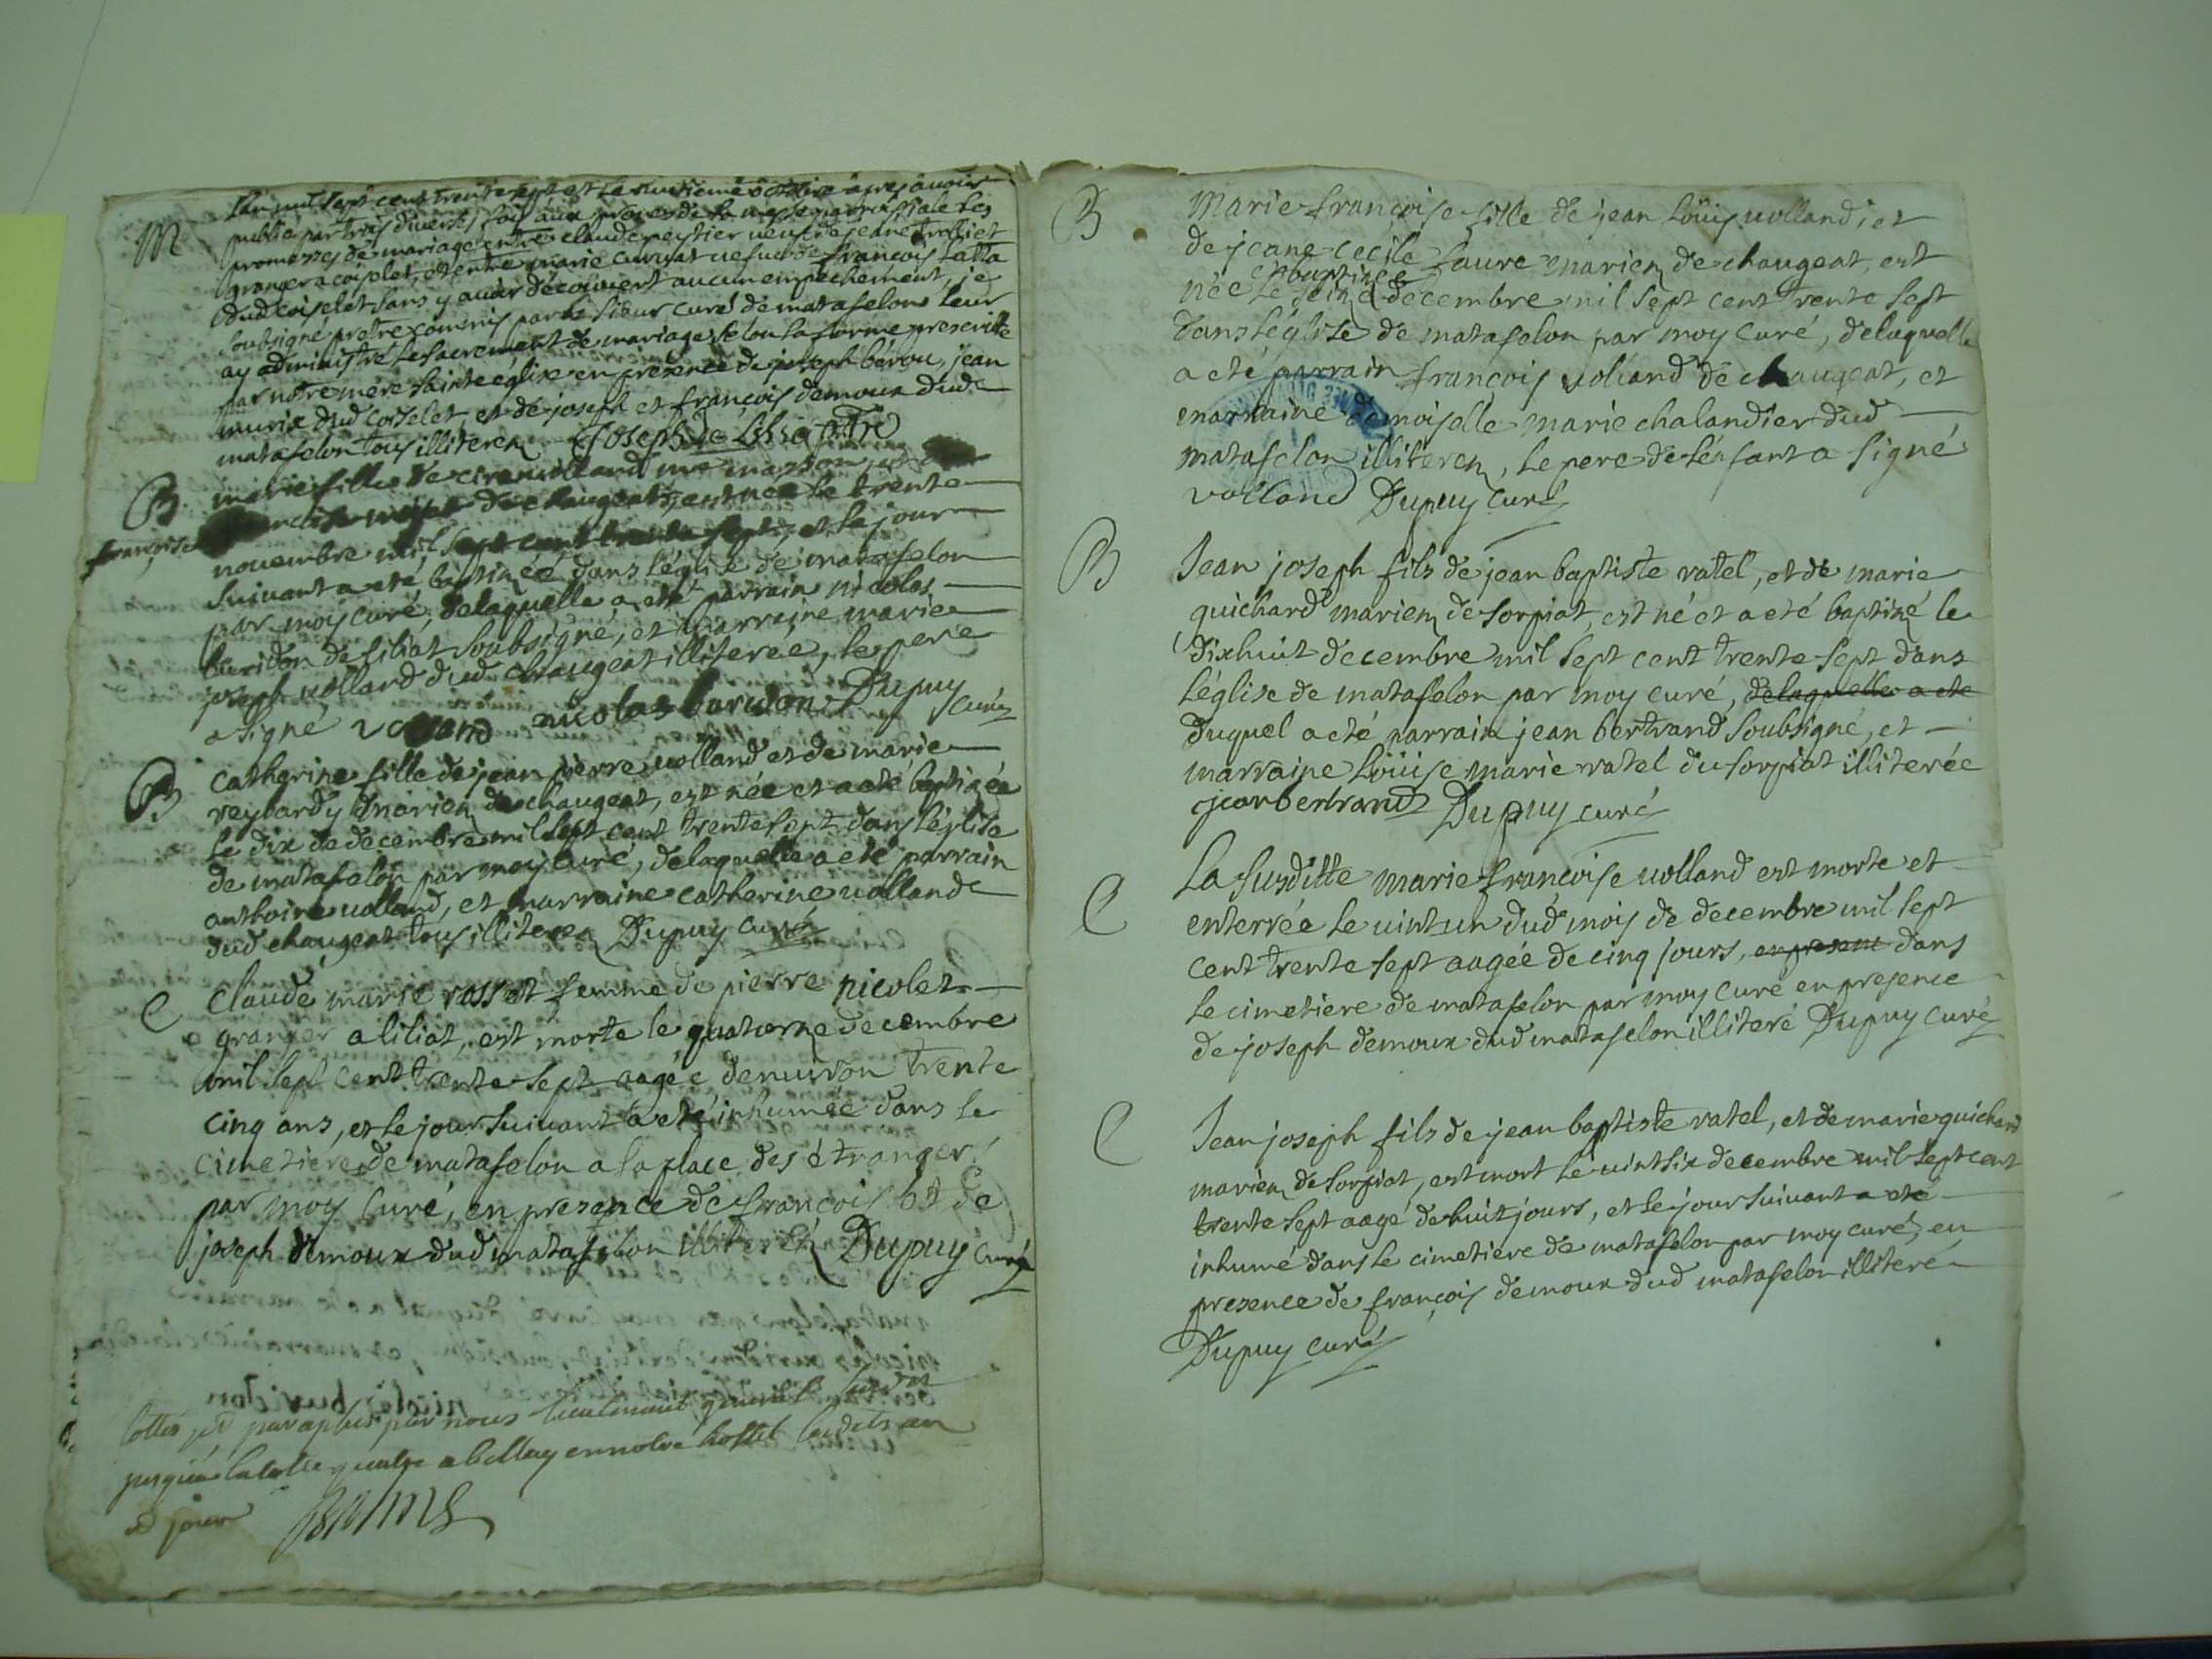 M
L'an mil sept cent trente sept et le huitieme octobre apres avoir
publié par trois diverses fois aux prones de la messe parroissiale les
promesses de mariage entre claude peytier veuf de jeane
granger a coiselet, et entre marie veuve de françois
dud coiselet sans y avoir découvert aucun empechement, je
soubsigné pretre commis par le sieur curé de matafelon leur
ay administré le sacrement de mariage selon la forme prescritte
par notre mere sainte eglise en presence de joseph bérou, jean
murix dud coiselet, et de joseph et françois demoux dud
matafelon tous illiterez Joseph De
B
marie fille de uolland me masson, et de
françoise
de chaugeat, est née le trente
novembre mil sept cent trente sept, et le jour
suivant a eté baptizéé dans l'église de matafelon
par moy curé, de laquelle a eté parrain nicolas
buridon de siliat soubsigné, et marraine marie
joseph uolland dud chaugeat illiterée, le pere
a signé volland nicolas buridon Dupuy curé
B
Catherine fille de jean pierre uolland et de marie
reybardy mariez de chaugeat, est née et a eté baptizéé
le dix de decembre mil sept cent trente sept dans l'église
de matafelon par moy curé, de laquelle a eté parrain
anthoine uolland, et marraine catherine uolland
dud chaugeat tous illiterez Dupuy curé
C
Claude marie rosset femme de pierre nicolet
granger a liliat, est morte le quatorze decembre
mil sept cent trente sept aagéé denuiron trente
cinq ans, et le jour suivant a eté inhuméé dans le
cimetiere de matafelon a la place des étranger
par moy curé, en presence de françois et de
joseph demoux dud matafelon illiterez Dupuy curé
Cottés et paraphés par nous lieutenant general
jusques la cotte quatre a bellay en notre hostel lesdits an
et jour
B
Marie françoise fille de jean Loüis uolland, et
de jeane cecile faure mariez de chaugeat, est
et baptizéé
néé le seize decembre mil sept cent trente sept
dans l'église de matafelon par moy curé, de laquelle
a eté parrain françois uolland de chaugeat, et
marraine demoiselle marie chalandier dud
matafelon illiterez, le pere de l'énfant a signé
volland Dupuy curé
B
Jean joseph fils de jean baptiste ratel, et de marie
guichard mariez de sorpiat, est né et a eté baptizé le
dixhuit decembre mil sept cent trente sept dans
l'église de matafelon par moy curé, de laquelle a eté
duquel a eté parrain jean bertrand soubsigné, et
marraine Loüise marie ratel du sorpiat illiterée
jean bertrand Dupuy curé
C
La susditte marie françoise uolland est morte et
enterréé le uint un dud mois de decembre mil sept
cent trente sept aagéé de cinq jours, en presence dans
le cimetiere de matafelon par moy curé en presence
de joseph demoux dud matafelon illiteré Dupuy curé
C
Jean joseph fils de jean baptiste ratel, et de marie guichard
mariez de sorpiat, est mort le uint six decembre mil sept cent
trente sept aagé de huit jours, et le jour suivant a eté
inhumé dans le cimetiere de matafelon par moy curé, en
presence de françois demoux dud matafelon illiteré
Dupuy curé